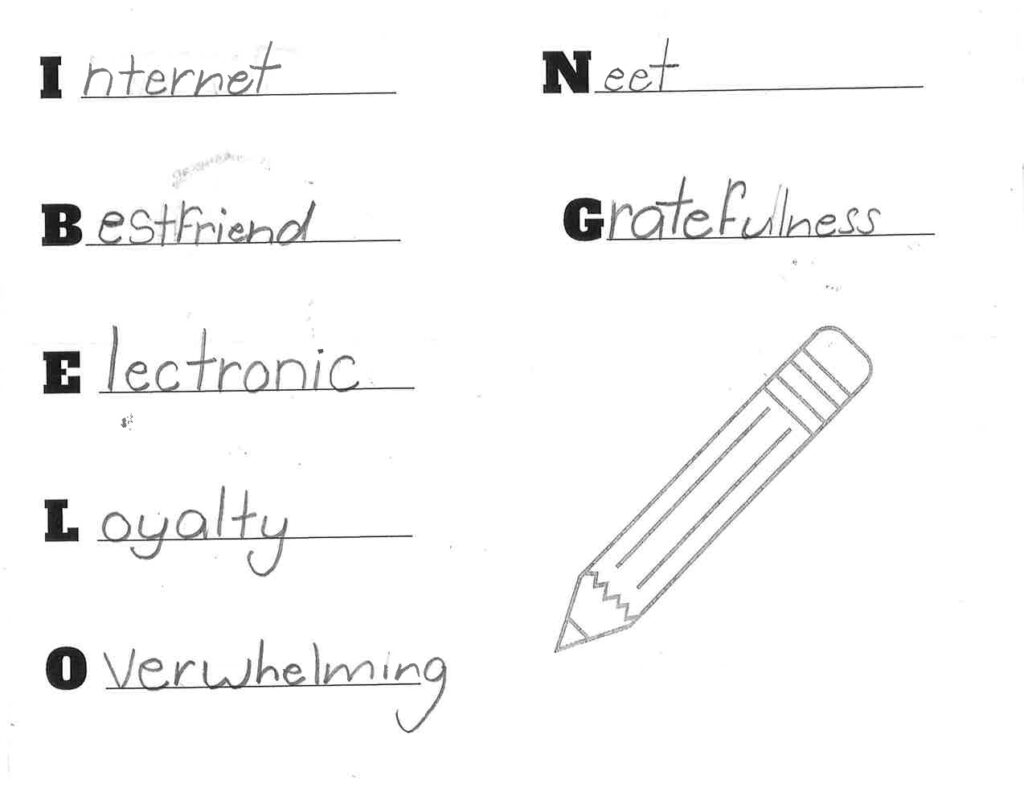 Internet
Bestfriend
Electronic
Loyalty
Overwhelming
Neet
Gratefulness